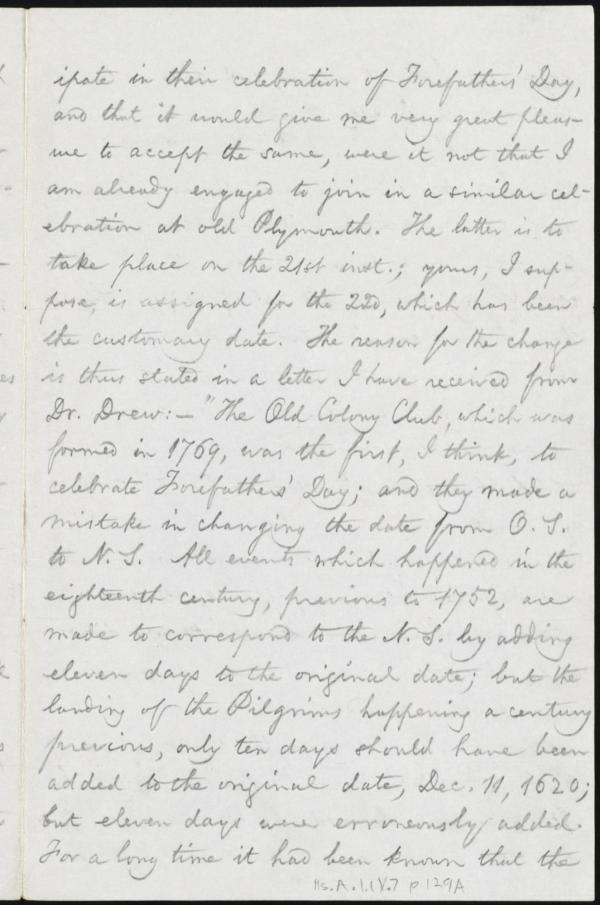 ipate in their celebration of Forefathers' Day,
and that it would give me very great pleas-
ure to accept the same, were it not that I
am already engaged to join in a similar cel-
ebration at old Plymouth. The latter is to
take place on the 21st inst.; yours, I sup-
pose, is assigned for the 22d, which has been
the customary date. The reason for the change
is thus stated in a letter I have received from
Dr. Drew:— "The Old Colony Club, which was
formed in 1769, was the first, I think, to
celebrate Forefathers' Day; and they made a
mistake in changing the date from O. S.
to N. S. All events which happened in the
eighteenth century, previous to 1752, are
made to correspond to the N. S. by adding
eleven days to the original date; but the
landing of the Pilgrims happening a century
previous, only ten days should have been
added to the original date, Dec. 11, 1620;
but eleven days were erroneously added.
For a long time it had been known that the
Ms.A.1.1 V.7 p 129A